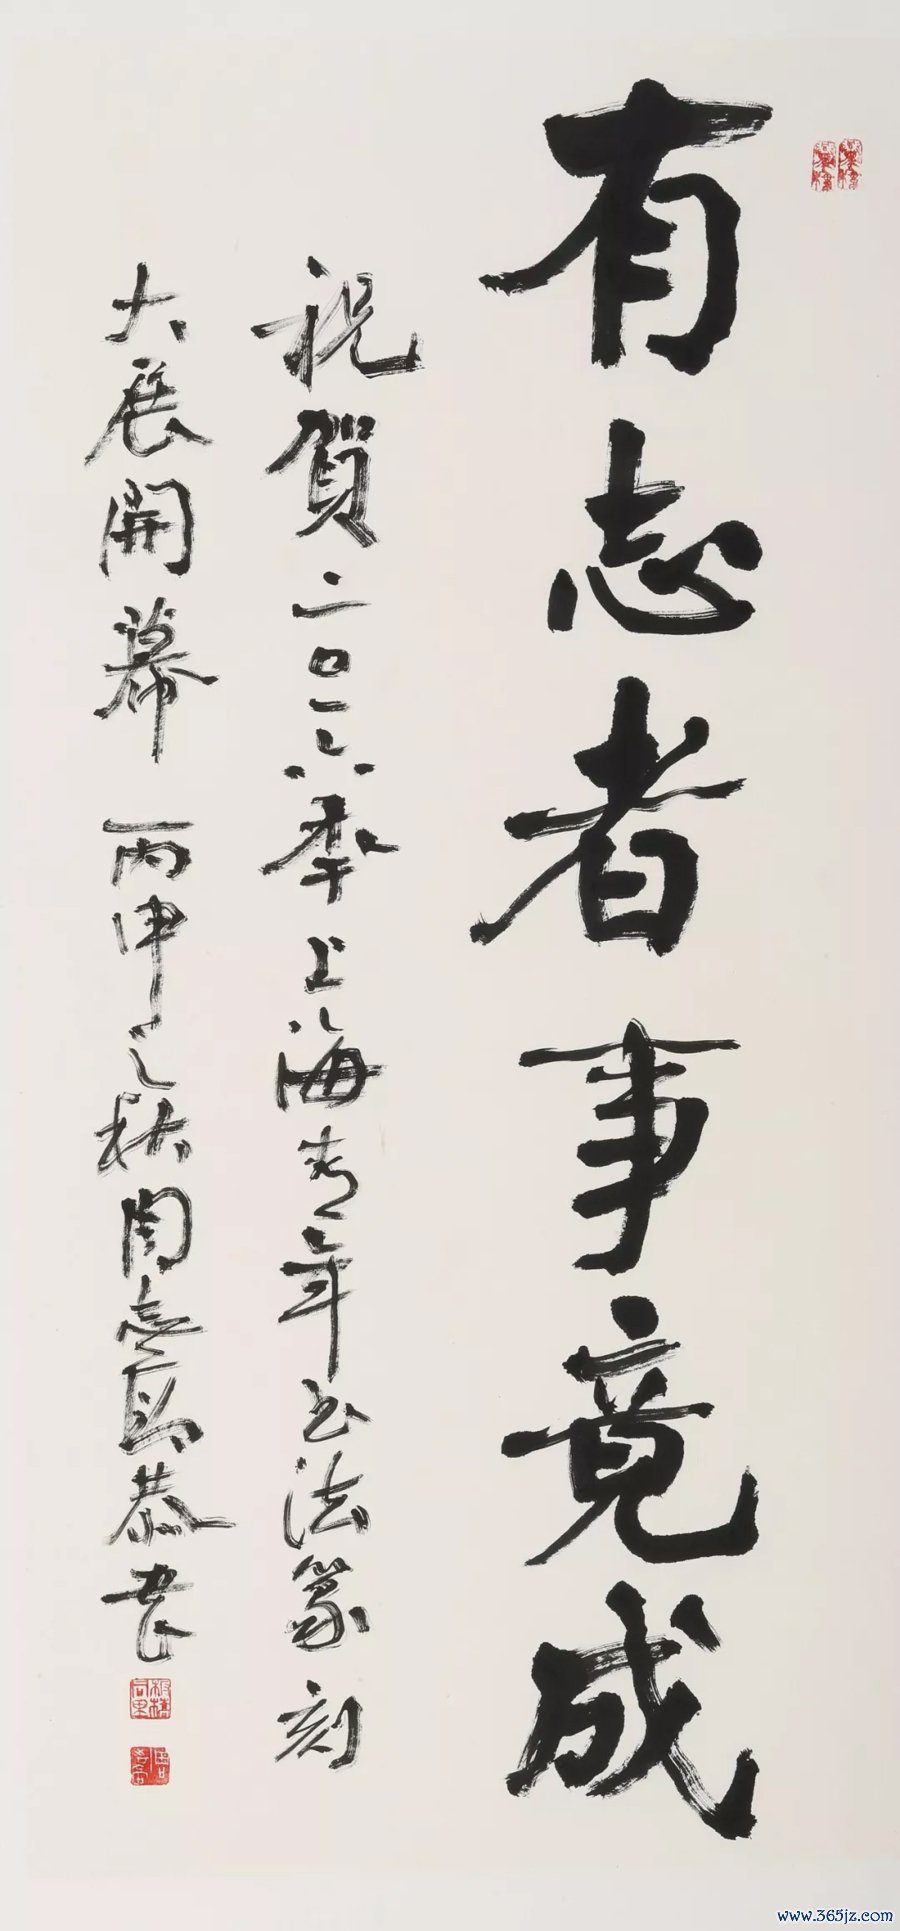 有志者事竟成
祝賀二〇一六秊上海青年书法篆刻
大展開幕 丙申之秋周恭书
www.365jz.com